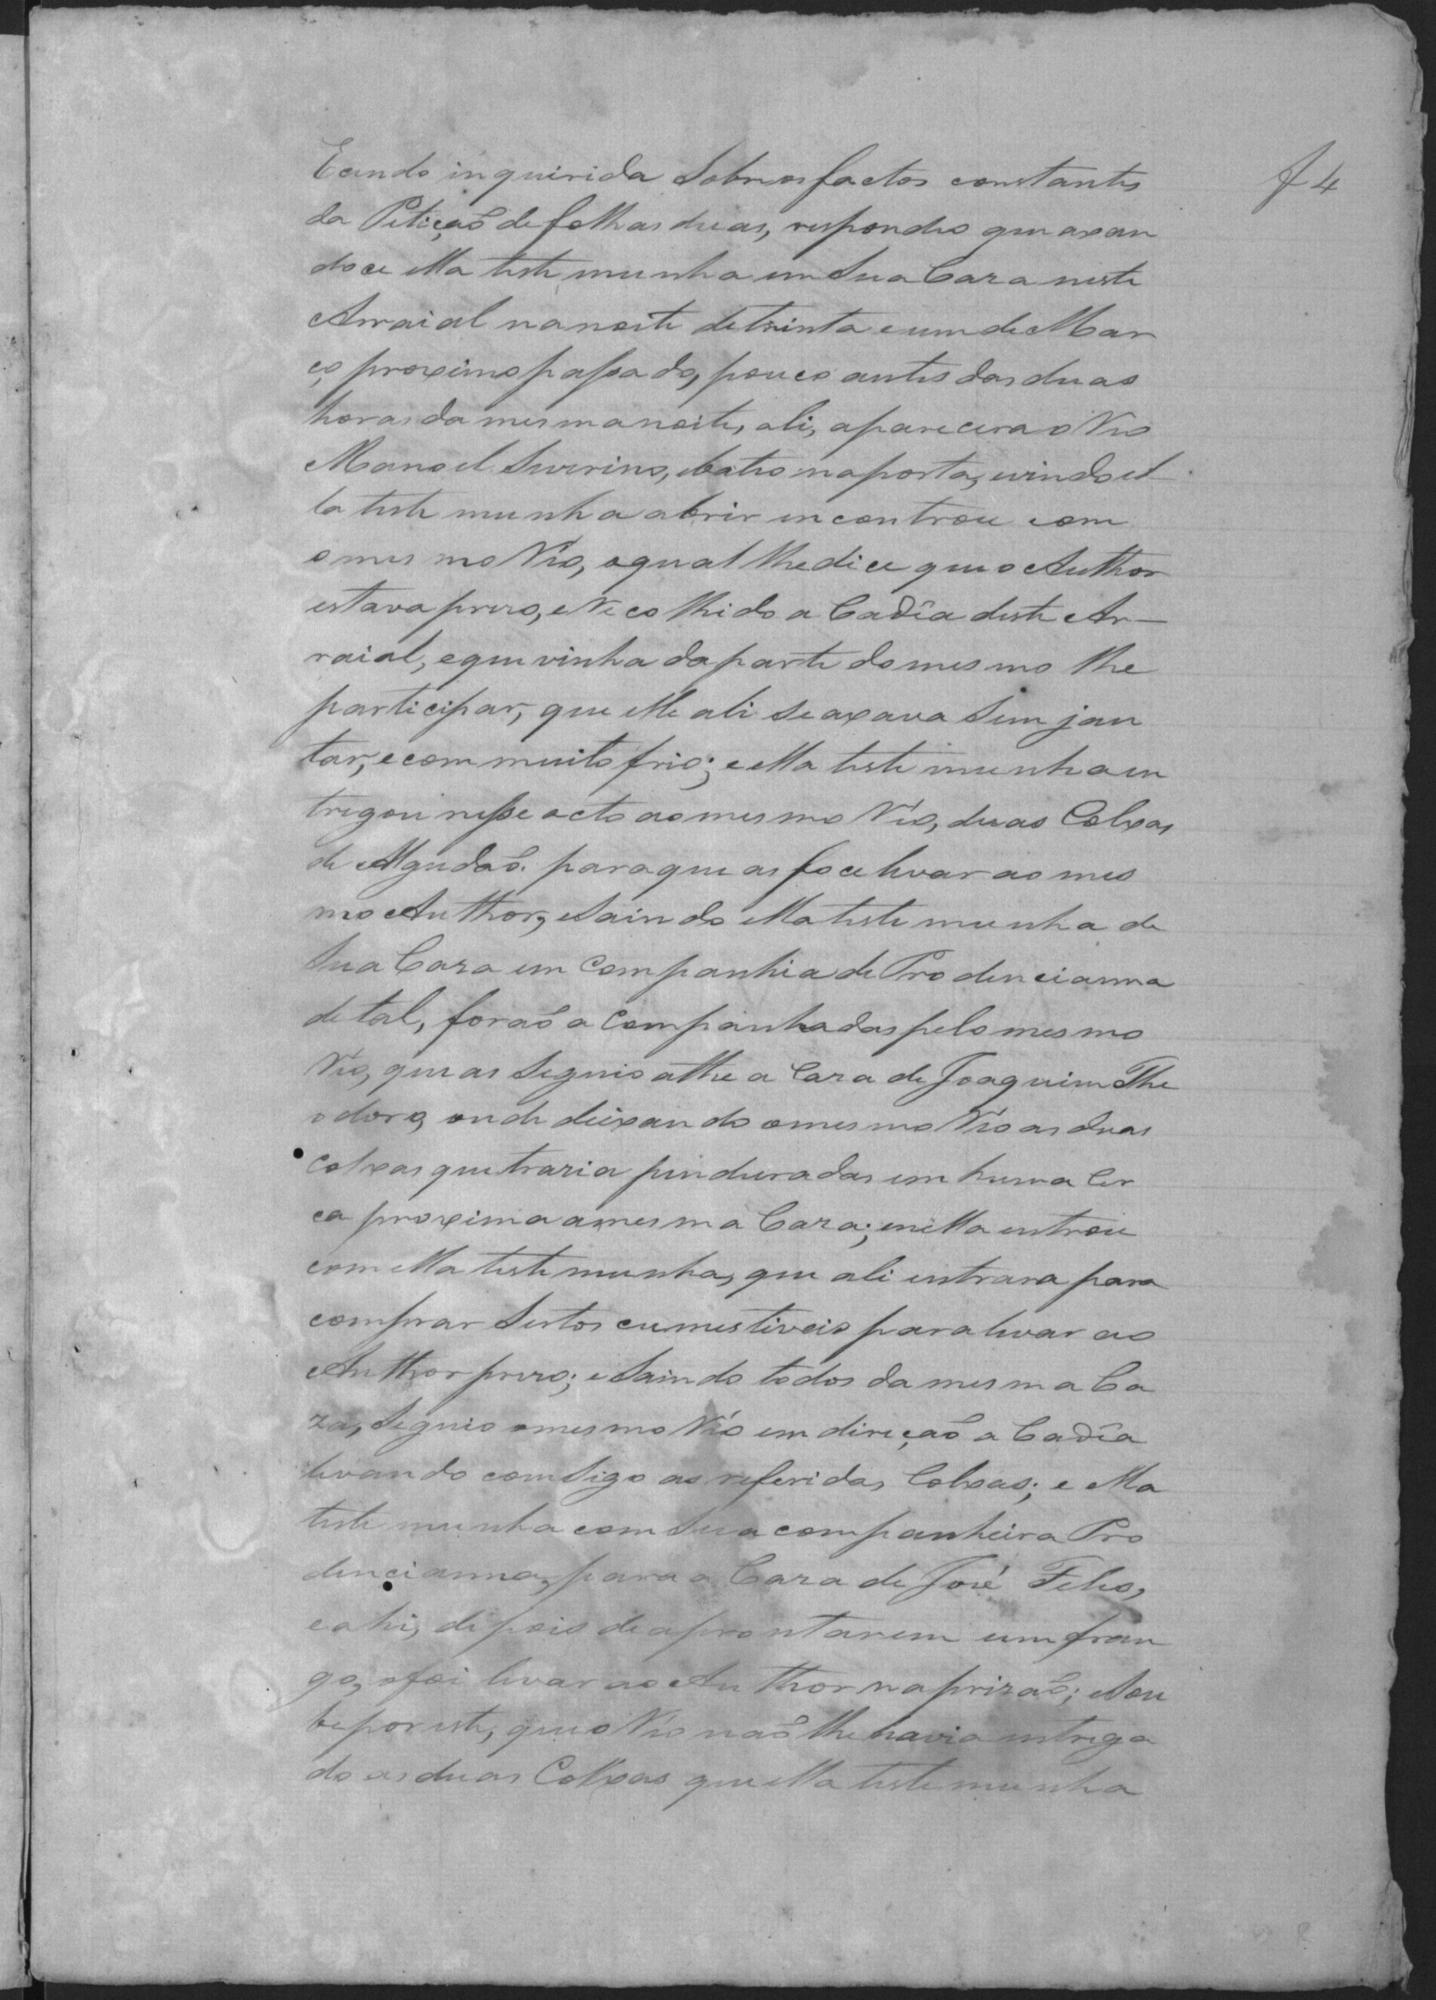 f 4
Eendo inquirida Sobre os factos constantes
da Petiçaõ de folhas duas, respondeo que axan
doce ella teste munha em Sua Caza neste
Arraial na noite de trinta e um de Mar
ço proximo passado, pouco antes das duas
horas da mesma noite, ali, aparecera o Reo
Manoel Suvrino, e bateo na porta, e vindo el
la teste munha abrir incontrou com
o mesmo Reo, o qual lhe dice que o Author
estava prezo, e Recolhido a Cadêa deste Ar-
raial, e que vinha da parte do mesmo lhe
participar, que elle ali se axava sem jan
tar, e com muito frio; e ella teste munha en
tregou nesse acto ao mesmo Réo, duas Colxas
de Algudaõ para que as foce levar ao mes
mo Author, e Saindo ella teste munha de
Sua Caza em Companhia de Prodencianna
de tal, foraõ a Companhadas pelo mesmo
Réo, que as Seguio athe a Caza de Joaquim The
odoro, onde deixando o mesmo Réo as duas
Colxas que trazia penduradas em huma Cer
ca proxima a mesma Caza; e nella entrou
com ella teste munha, que ali entrara para
comprar Sertos cumestiveis para levar ao
Author prezo; e Saindo todos da mesma Ca
za, Seguio o mesmo Réo em direçaõ a Cadêa
levando comSigo as referidas Colxas; e ella
teste munha com Sua companheira Pro
dencianna, para a Caza de José Felis,
e ahi, depois de aprontarem um fran
go, o foi levar ao Author na prizaõ; e Sou
be por este, que o Réo naõ lhe havia entrega
do as duas Colxas que ella teste munha